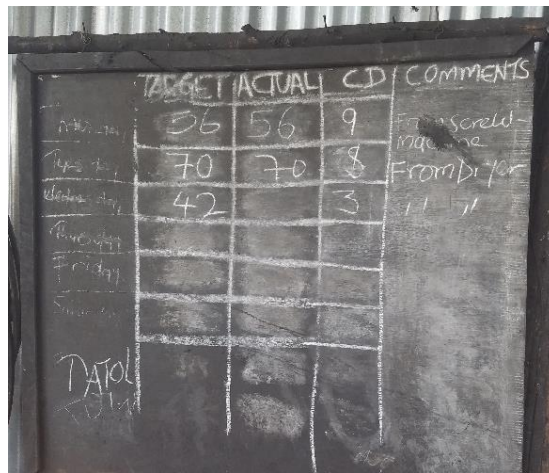 TARGET ACTUAL CD COMMENTS
Monday 36 56 9 From screld-
Machine
Tuesday 70 70 8 From Dryer
Wednesday 42 3 ,, ,,
Thursday
Friday
DATOL